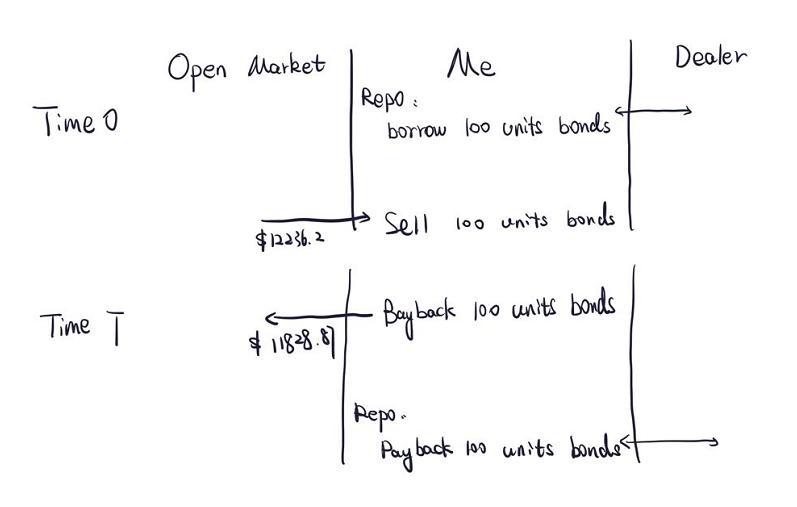 Open Market
Me
Dealer
Time 0
Repo:
borrow 100 units bonds
$12236.2
Sell 100 units bonds
Time T
Bayback 100 units bonds
$11828.87
Repo.
Payback 100 units bonds